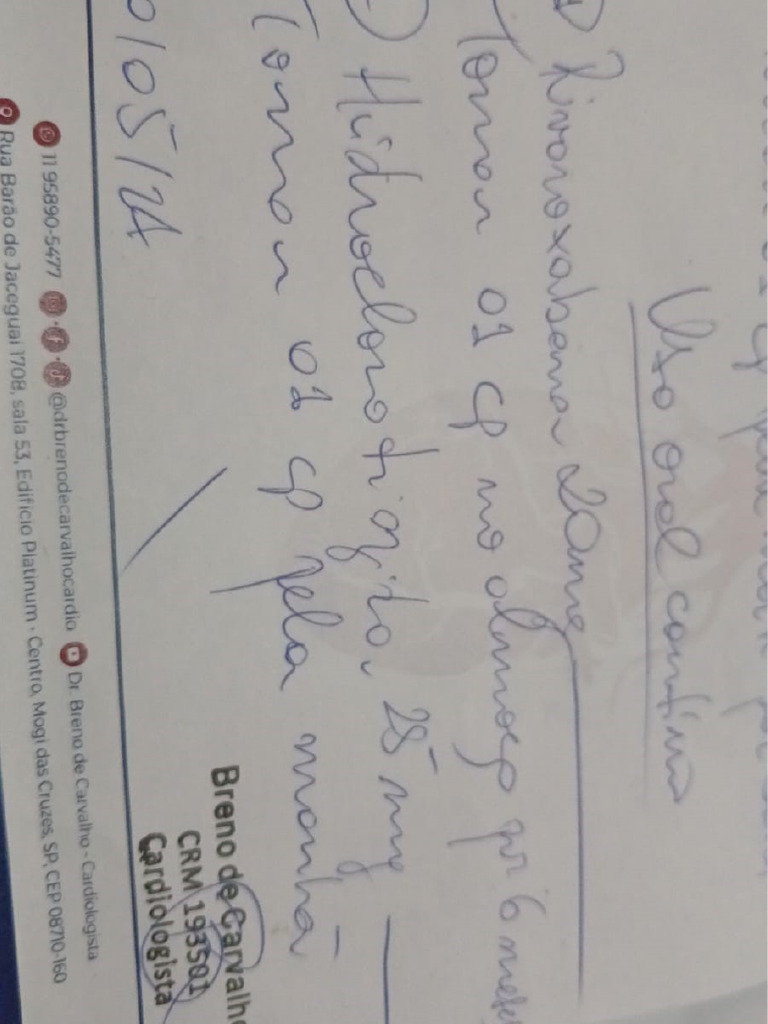 Uso oral contínuo
1) Rivaroxabana 20mg
Tomar 01 cp no almoço por 6 meses
) Hidroclorotiazida 25 mg
Tomar 01 cp pela manhã
0/05/24
Breno de Carvalho
CRM 193501
Cardiologista
11 95890-5477 @drbrenodecarvalhocardio Dr. Breno de Carvalho - Cardiologista
Rua Barão de Jaceguai 1708, sala 53, Edifício Platinum · Centro, Mogi das Cruzes, SP, CEP 08710-160